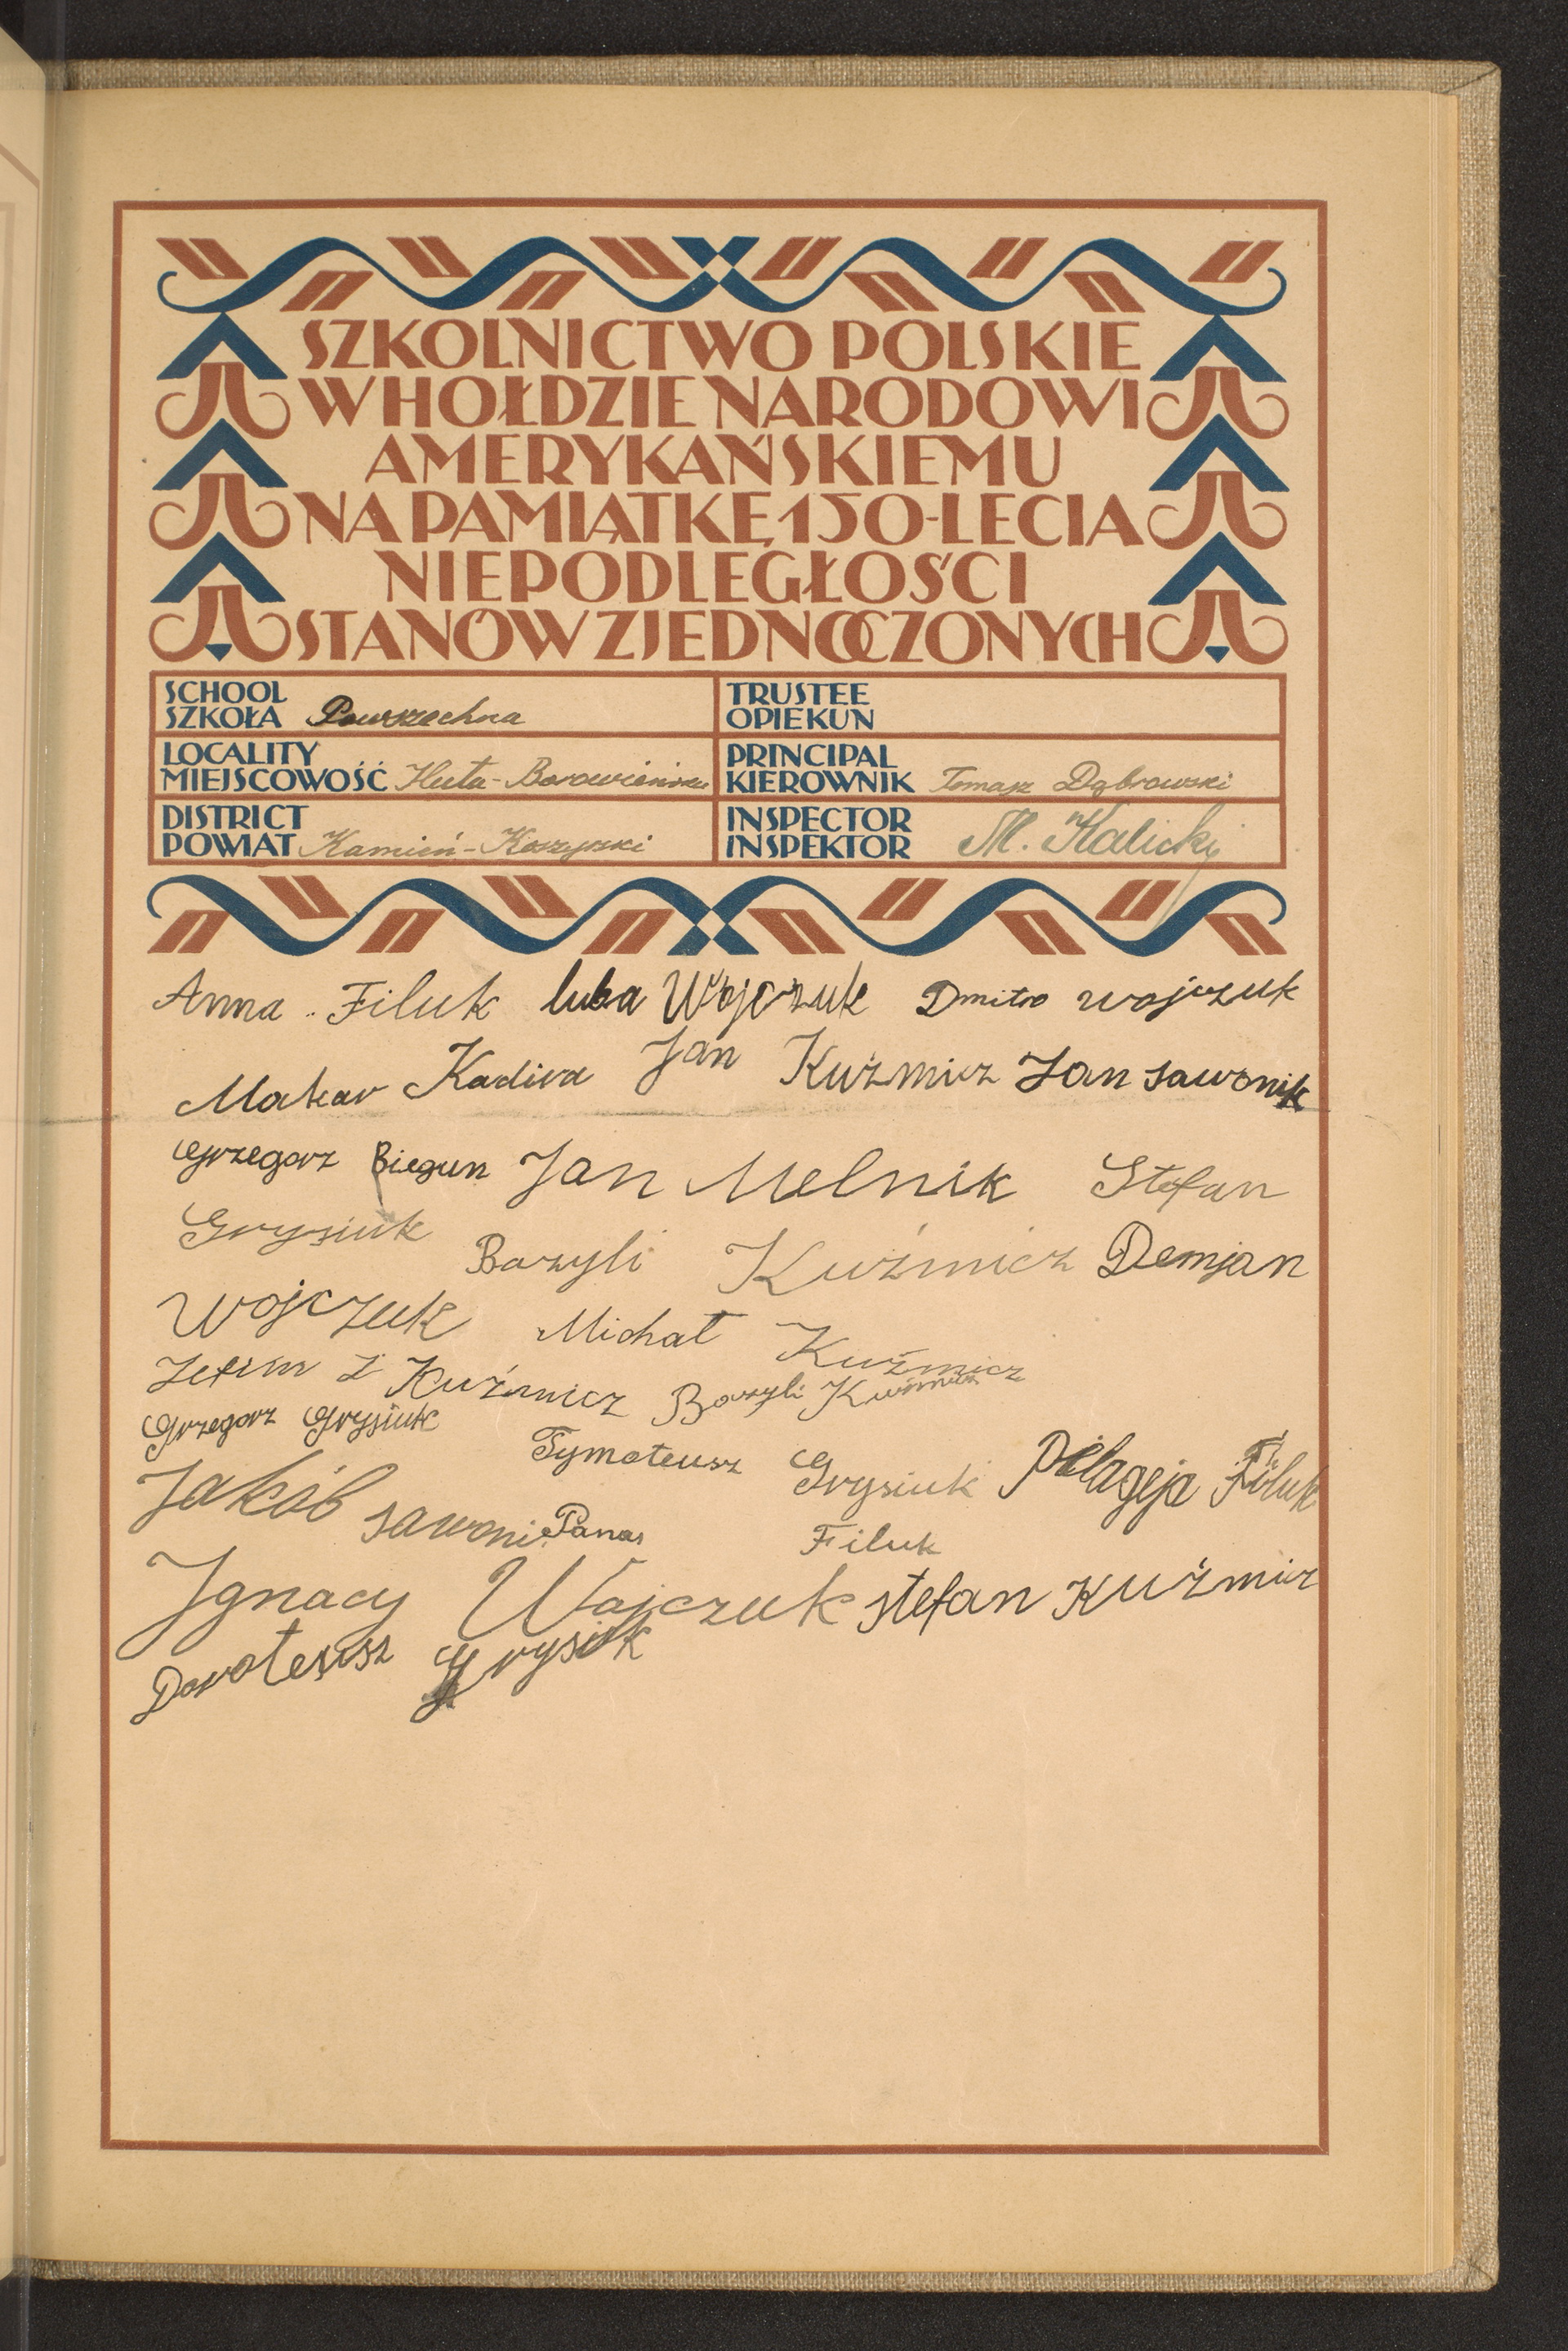 SZKOLNICTWO POLSKIE
W HOŁDZIE NARODOWI
AMERYKAŃSKIEMU
NA PAMIĄTKĘ 150-LECIA
NIEPODLEGŁOŚCI
STANÓW ZJEDNOCZONYCH
SCHOOL
SZKOŁA Powszechna
TRUSTEE
OPIEKUN
LOCALITY
MIEJSCOWOŚĆ Huta-
PRINCIPAL
KIEROWNIK Tomasz Dąbrowski
DISTRICT
POWIAT Kamień-Koszyrski
INSPECTOR
INSPEKTOR M. Kalicki
Anna Filuk luba Wojczuk Dmitro wojczuk
Makar Kadira Jan Kuźmicz Jan sawonik
Grzegorz Biegun Jan Melnik Stefan
Grysiuk Bazyli Kuźmicz Demjan
Wojczuk Michał Kuźmicz
Kuźmicz Bazyli Kuźmicz
Grzegorz Grysiuk Tymoteusz Grysiuk Pelageja Filuk
Jakób sawoni Panas Filuk
Ignacy Wojczuk stefan Kuźmicz
Doroteusz Grysiuk